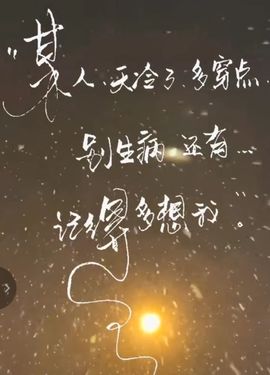 “某人、天冷了、多穿点
别生病、还有...
记得多想我”。